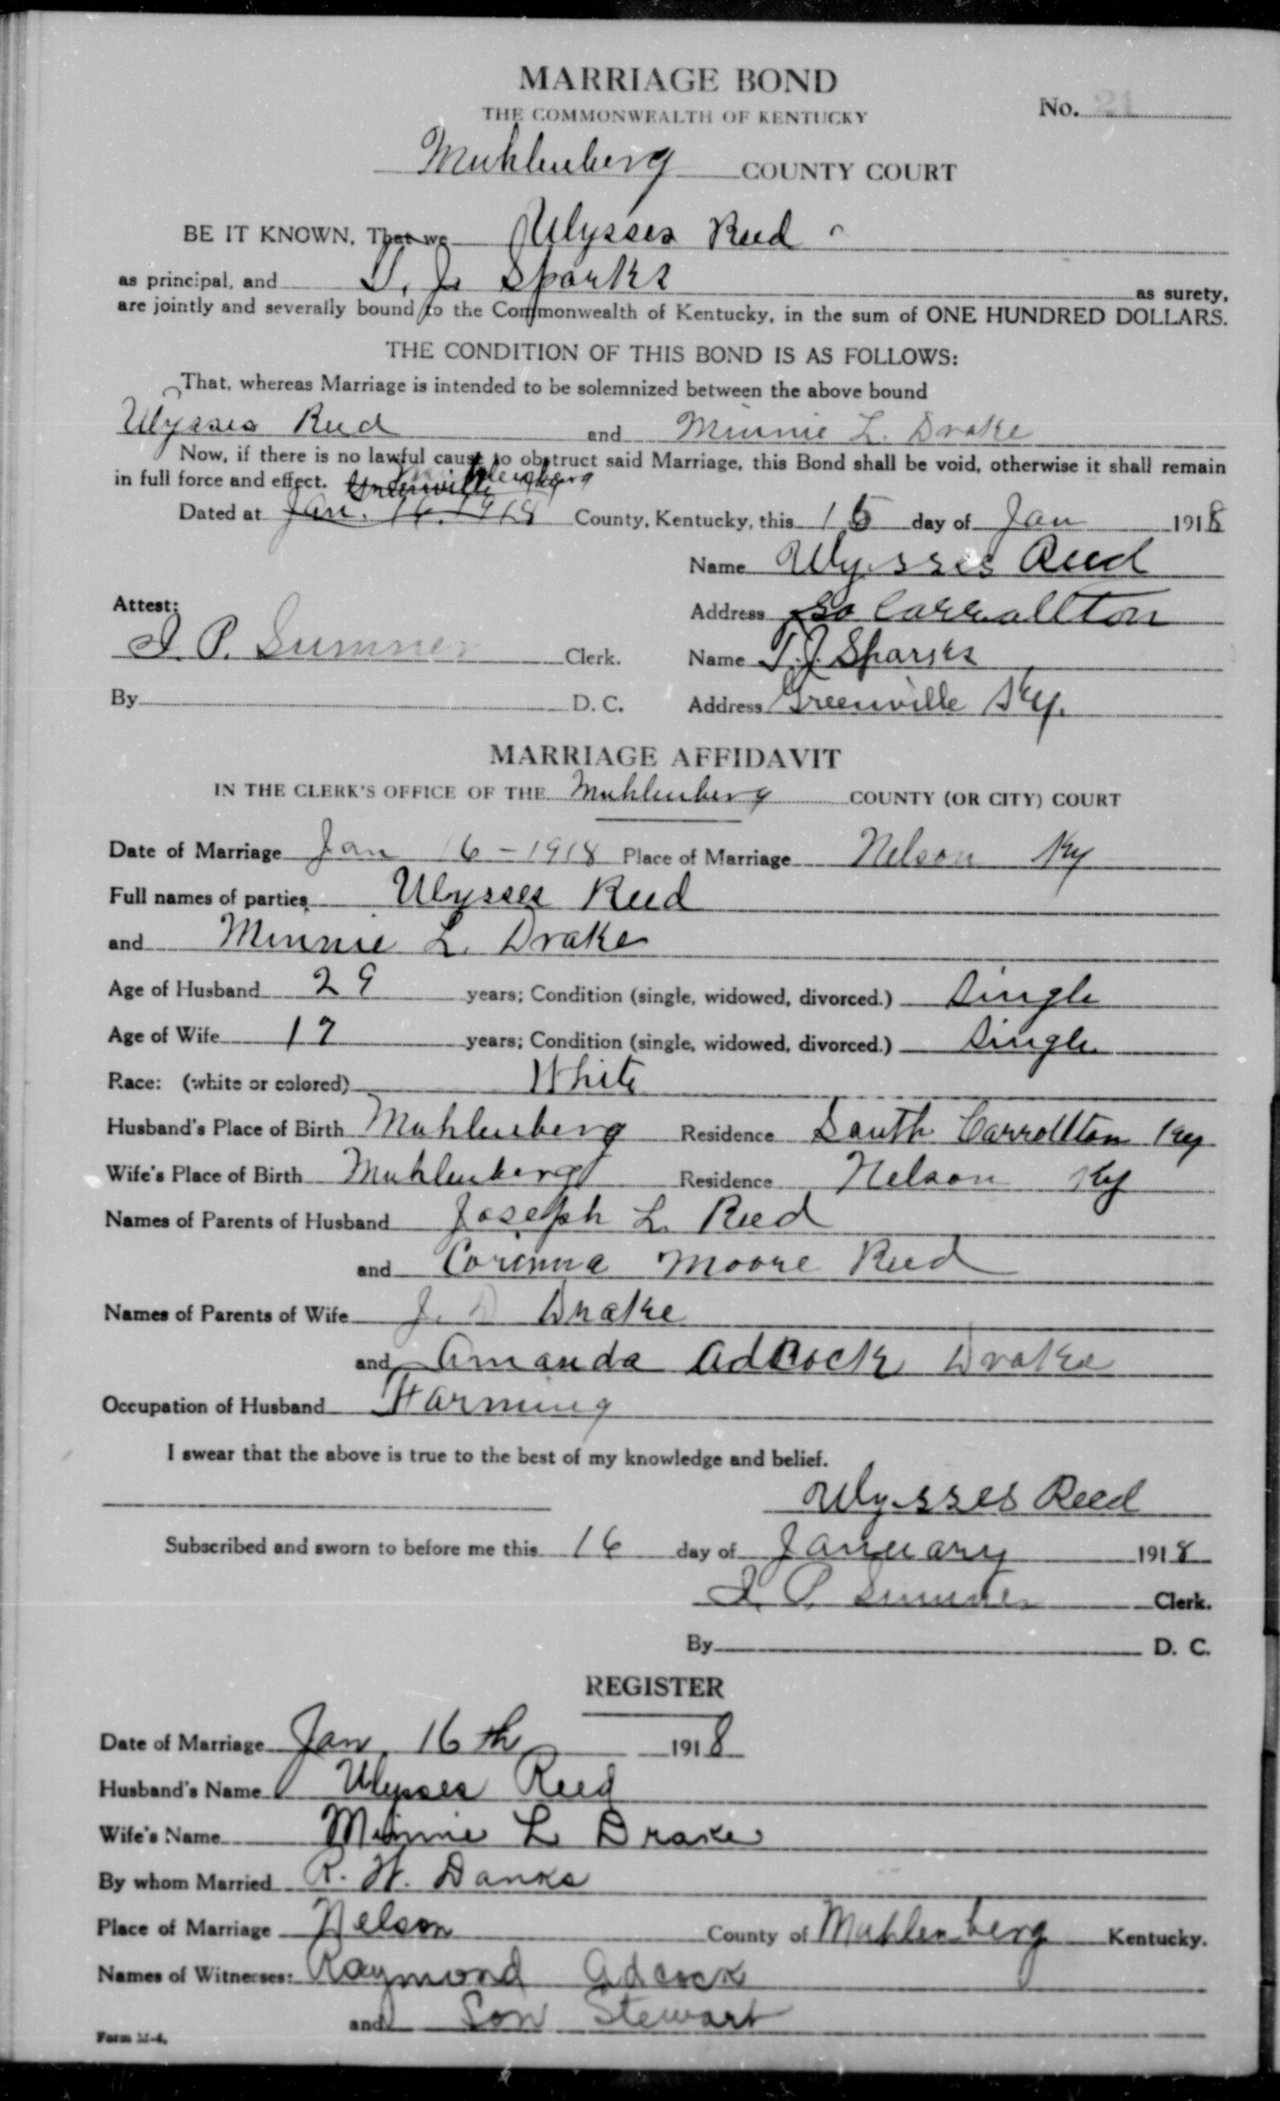 MARRIAGE BOND
THE COMMONWEALTH OF KENTUCKY
No. 21
Muhlenberg COUNTY COURT
BE IT KNOWN, That we Ulysses Reed
as principal, and T. J. Sparks as surety,
are jointly and severally bound to the Commonwealth of Kentucky, in the sum of ONE HUNDRED DOLLARS.
THE CONDITION OF THIS BOND IS AS FOLLOWS:
That, whereas Marriage is intended to be solemnized between the above bound
Ulysses Reed and Minnie L. Drake
Now, if there is no lawful cause to obstruct said Marriage, this Bond shall be void, otherwise it shall remain
in full force and effect. Greenville Muhlenberg
Dated at Jan. 16. 1918 County, Kentucky, this 16 day of Jan 1918
Name Ulysses Reed
Attest: Address So Carrollton
I. P. Sumner Clerk. Name T. J. Sparks
By D. C. Address Greenville Ky.
MARRIAGE AFFIDAVIT
IN THE CLERK'S OFFICE OF THE Muhlenberg COUNTY (OR CITY) COURT
Date of Marriage Jan 16 - 1918 Place of Marriage Nelson Ky
Full names of parties Ulysses Reed
and Minnie L. Drake
Age of Husband 29 years; Condition (single, widowed, divorced.) Single
Age of Wife 17 years; Condition (single, widowed, divorced.) Single
Race: (white or colored) White
Husband's Place of Birth Muhlenberg Residence South Carrollton Ky
Wife's Place of Birth Muhlenberg Residence Nelson Ky
Names of Parents of Husband Joseph L. Reed
and Corinna Moore Reed
Names of Parents of Wife J. D Drake
and Amanda Adcock Drake
Occupation of Husband Farming
I swear that the above is true to the best of my knowledge and belief.
Ulysses Reed
Subscribed and sworn to before me this 16 day of January 1918
I. P. Sumner Clerk.
By D. C.
REGISTER
Date of Marriage Jan, 16th 1918
Husband's Name Ulysses Reed
Wife's Name Minnie L Drake
By whom Married R. W. Danks
Place of Marriage Nelson County of Muhlenberg Kentucky.
Names of Witnesses: Raymond Adcock
and Son Stewart
Form M-4.